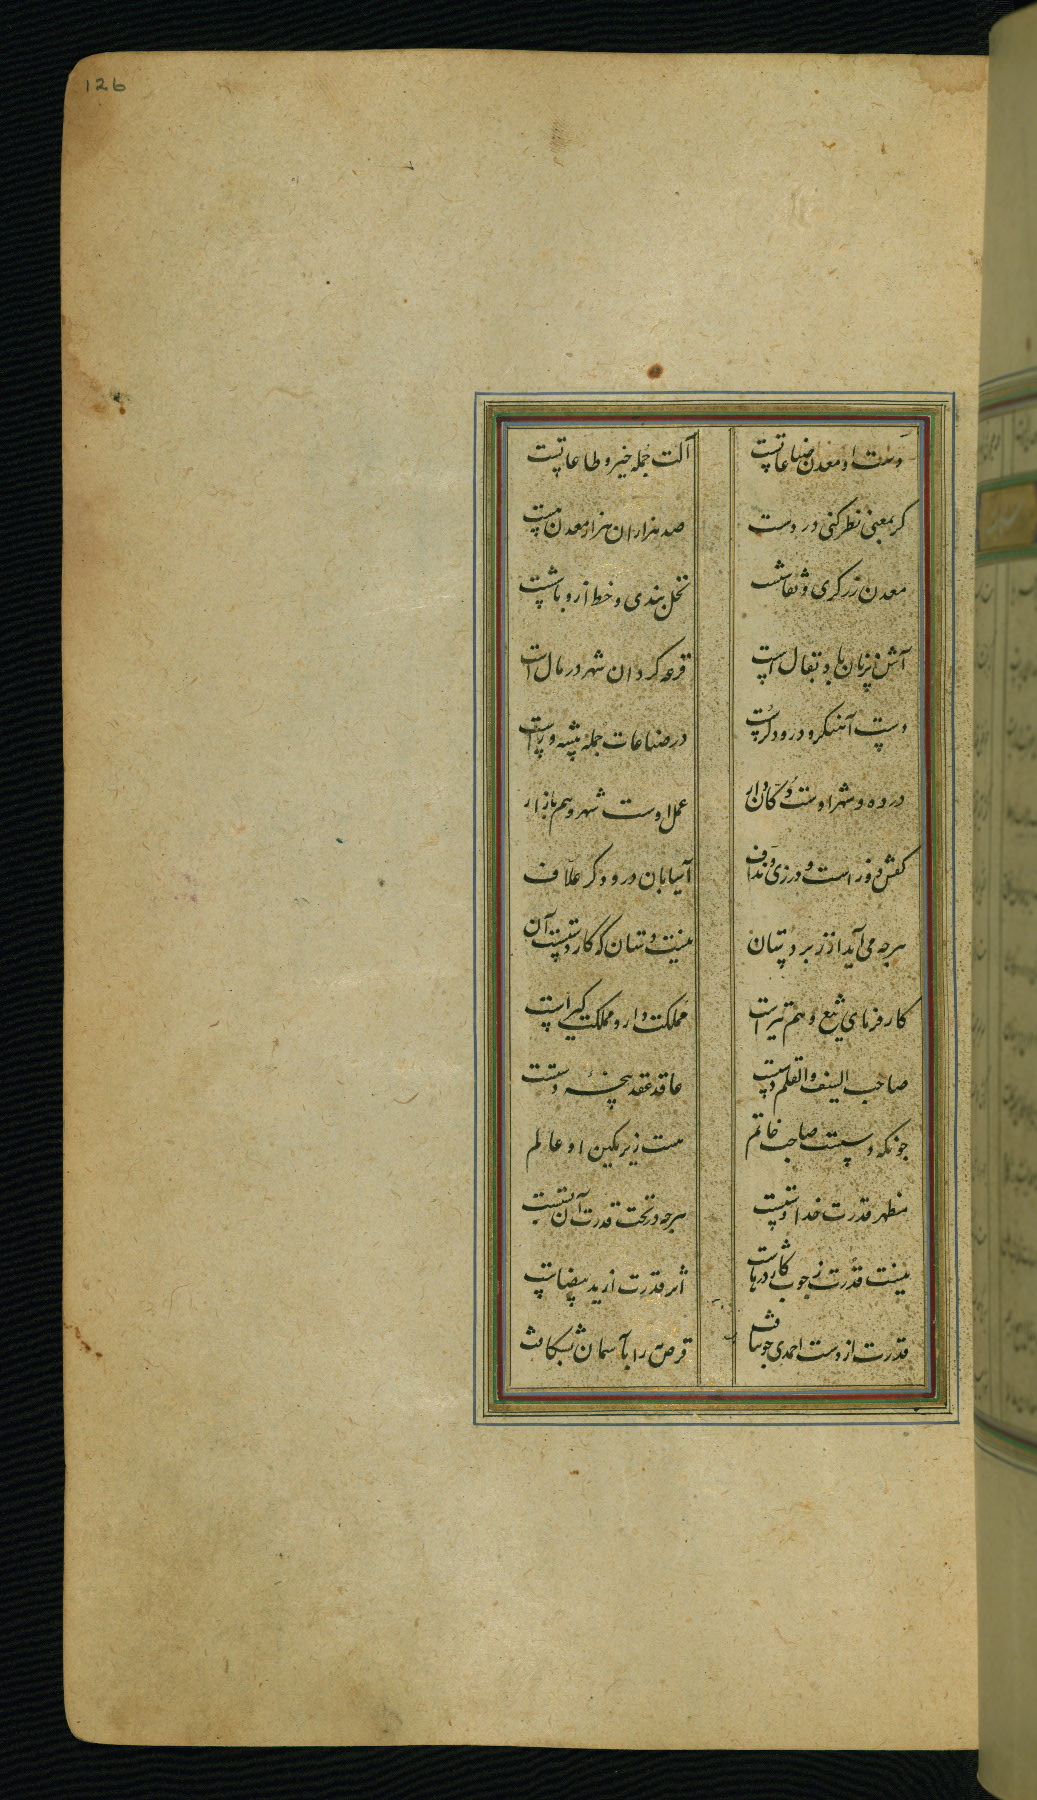 126
دست او معدن صناعاتست
آلت جمله خیر و طاعاتست
کر بمعنی نظر کنی در دست
صد هزاران هنر از معدن هست
معدن زرکری و نقاشیست
نخل بندی و خط از و
آش پزنان با و بقال است
قرعه کردان شهر در مال است
دست آهنکر و درودکرست
در صناعات جمله پیشه ورست
در ده و شهر اوست دکان دار
عمل اوست شهر و هم بازار
کفش دوز است و درزی و نداف
آسیابان درودکر علاف
هرچه می آید از زبردستان
نیست دستان که کار دستست آن
کار فرمای تیغ و هم تیر است
مملکت دار و مملکت کیر است
صاحب السیف والقلم دست
عاقد عقد پنجه دستست
چونکه دستست صاحب خاتم
هست زیر نکین او عالم
مظهر قدرت خدا دستست
هرچه در تحت قدرت آن بستست
نیست قدرت ز چوب کاژدرهاست
اثر قدرت از ید بیضاست
قدرت از دست احمدی چو بتافت
قرص مه را بآسمان بشکافت